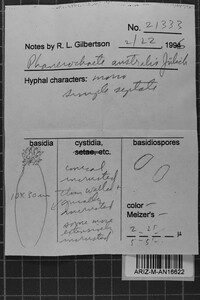 No. 21333
Notes by R. L. Gilbertson 2/22, 1996
Phanerochaete australis Jülich
Hyphal characters: mono
simple septate
basidia cystidia, basidiospores
setae, etc.
conical
incrusted
thin walled
incrusted
some more
extensively
incrusted
color –
Melzer's –
μ
ARIZ-M-AN16622